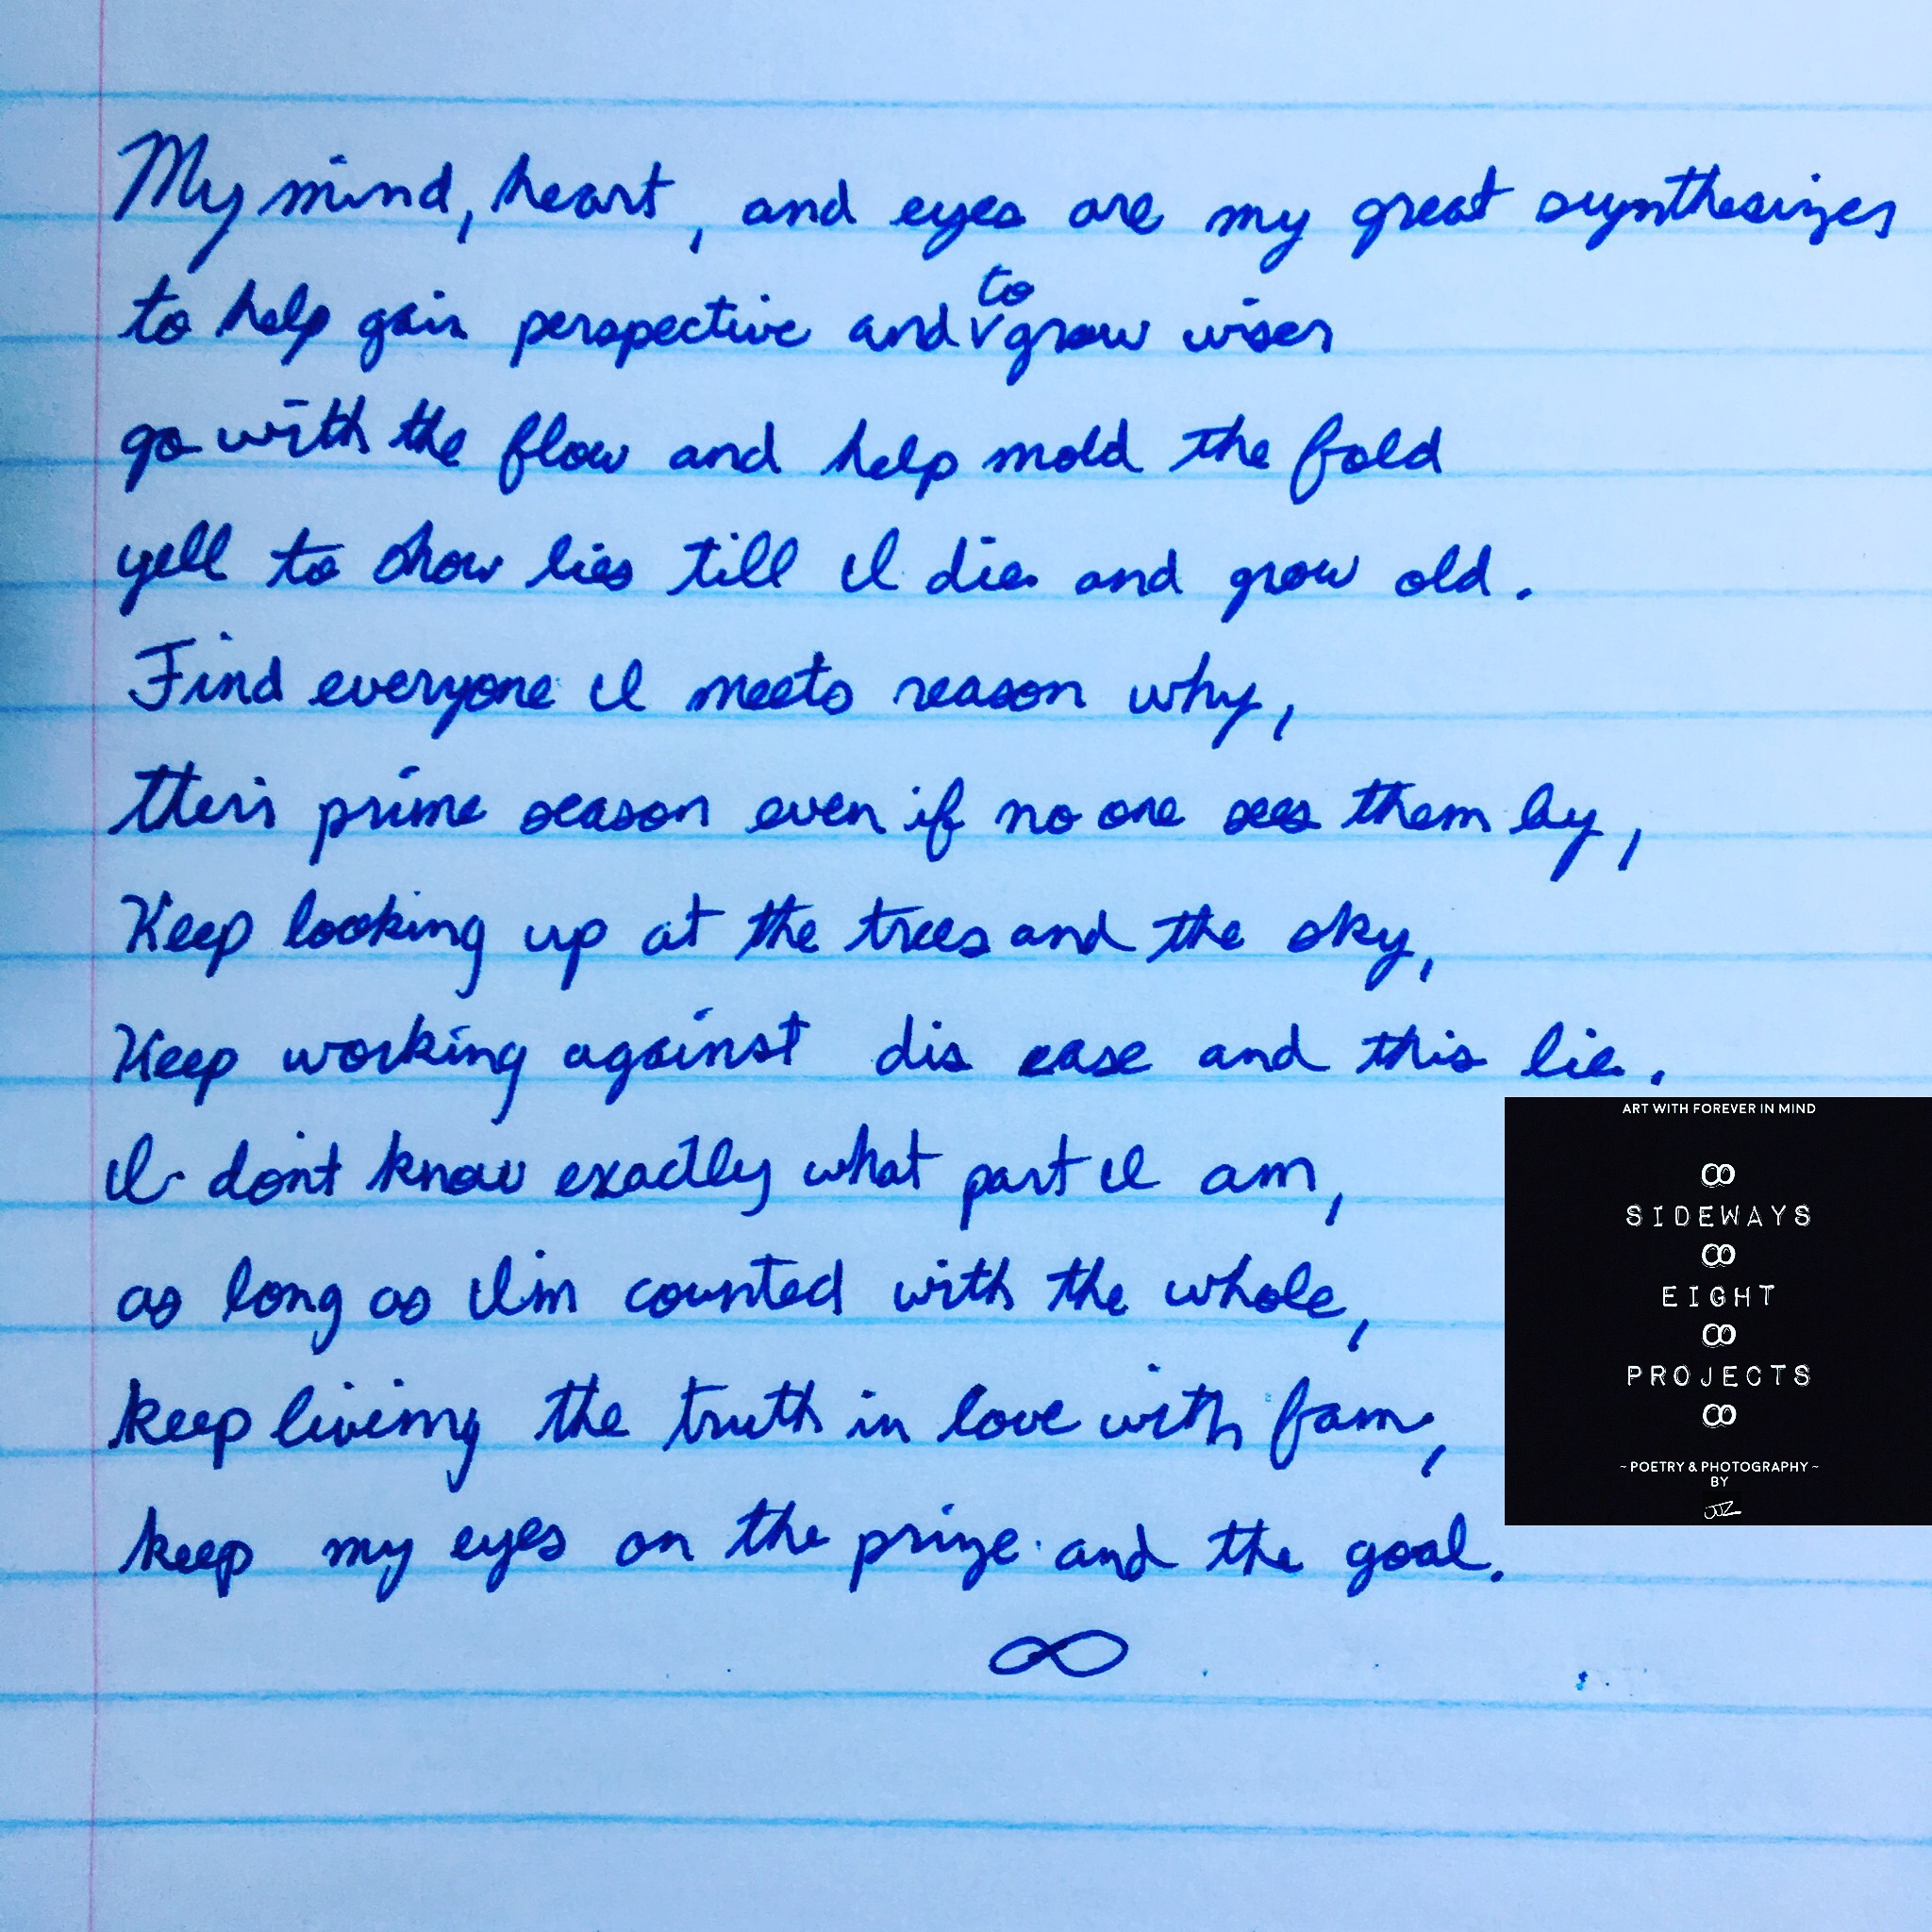 My mind, heart, and eyes are my great synthesizer
to help gain perspective and to grow wiser
go with the flow and help mold the fold
yell to show lies till I die and grow old.
Find everyone I meets reason why,
their prime season even if no one sees them by,
Keep looking up at the trees and the sky,
Keep working against dis ease and this lie.
I don't know exactly what part I am,
as long as I'm counted with the whole,
keep living the truth in love with fam,
keep my eyes on the prize and the goal.
∞
ART WITH FOREVER IN MIND
∞
SIDEWAYS
∞
EIGHT
∞
PROJECTS
∞
~ POETRY & PHOTOGRAPHY ~
BY
JTZ